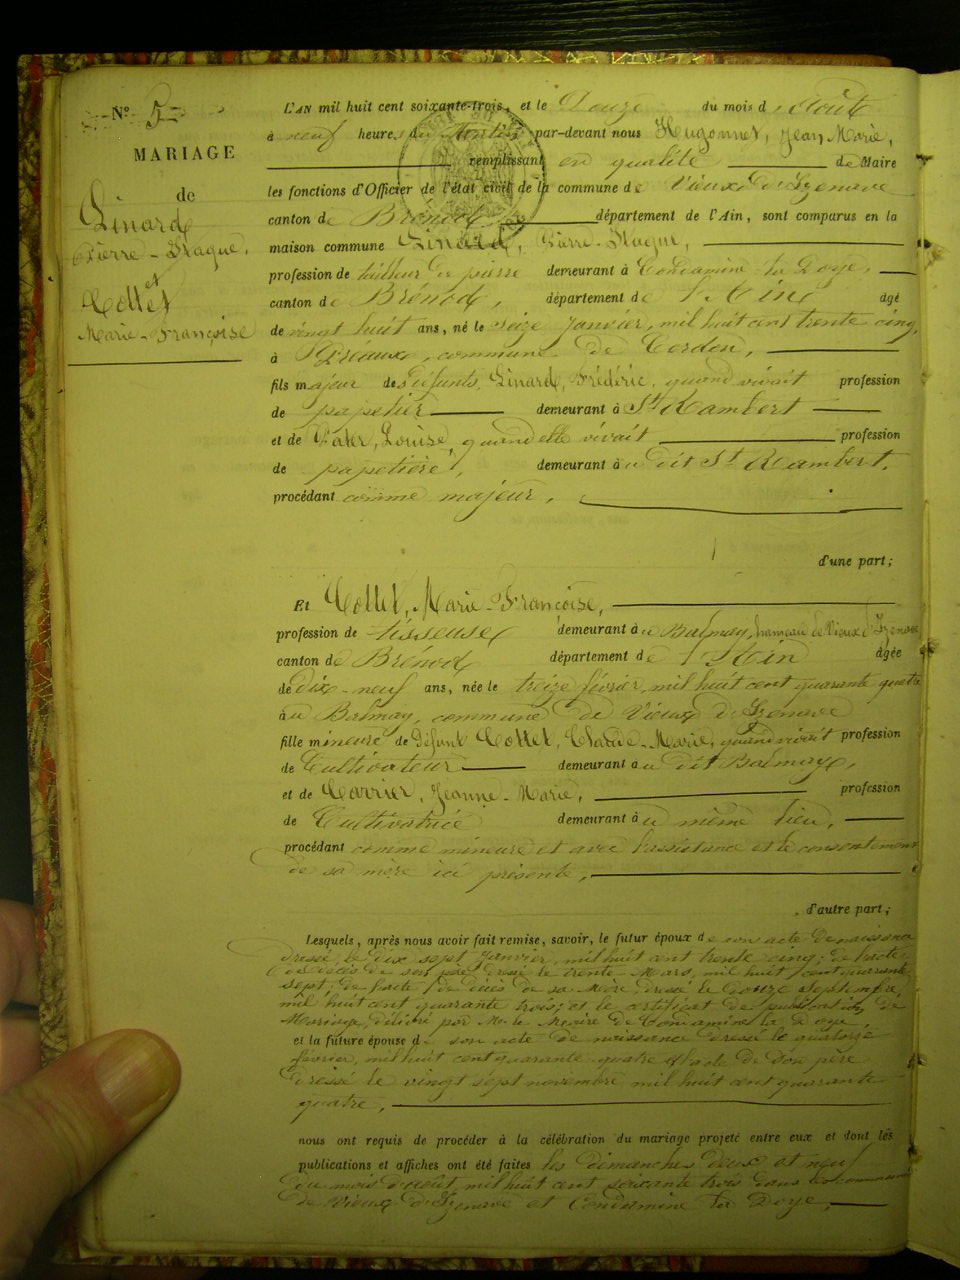 N° 5
MARIAGE
de
Linard
Pierre-
et
Collet
Marie-Françoise
L'AN mil huit cent soixante-trois, et le Douze du mois d'Août
à neuf heures du Matin par-devant nous Hugonnet, Jean Marie,
remplissant en qualité de Maire
les fonctions d'Officier de l'état civil de la commune de Vieux d'Izenave
canton de Brénod département de l'Ain, sont comparus en la
maison commune Linard, Pierre-
profession de tailleur de pierre demeurant à Condamine la Doye,
canton de Brénod, département de l'Ain âgé
de vingt huit ans, né le seize Janvier, mil huit cent trente cinq,
à commune de Cerdon,
fils majeur de Défunts Linard, Frédéric, quand vivait profession
de papetier demeurant à St Rambert
et de Louise, quand elle vivait profession
de papetière, demeurant à u dit St Rambert,
procédant comme majeur,
d'une part;
Et Collet, Marie-Françoise,
profession de tisseuse demeurant à u Balmay, hameau de Vieux d'Izenave
canton de Brénod département de l'Ain âgée
de dix-neuf ans, née le treize février, mil huit cent quarante quatre
à u Balmay, commune de Vieux d'Izenave
fille mineure de défunt Collet, Claude-Marie, quand vivait profession
de Cultivateur demeurant à u dit Balmay,
et de Carrier, Jeanne-Marie, profession
de Cultivatrice demeurant à u même lieu,
procédant comme mineure et avec l'assistance et le consentement
de sa mère ici présente,
d'autre part;
Lesquels, après nous avoir fait remise, savoir, le futur époux de son acte de naissance
dressé le dix sept Janvier, mil huit cent trente cinq; de l'acte
de décès de son père dressé le trente Mars, mil huit cent quarante
sept; de l'acte de décès de sa Mère dressé le douze Septembre,
mil huit cent quarante trois; et le certificat de publication de
Mariage, délivré par Mr le Maire de Condamine la Doye,
et la future épouse d e son acte de naissance dressé le quatorze
février, mil huit cent quarante quatre et l'acte de son père
dressé le vingt sept novembre mil huit cent quarante
quatre,
nous ont requis de procéder à la célébration du mariage projeté entre eux et dont les
publications et affiches ont été faites les dimanches deux et neuf
du mois d'août, mil huit cent soixante trois dans les communes
de Vieux d'Izenave et Condamine la Doye,